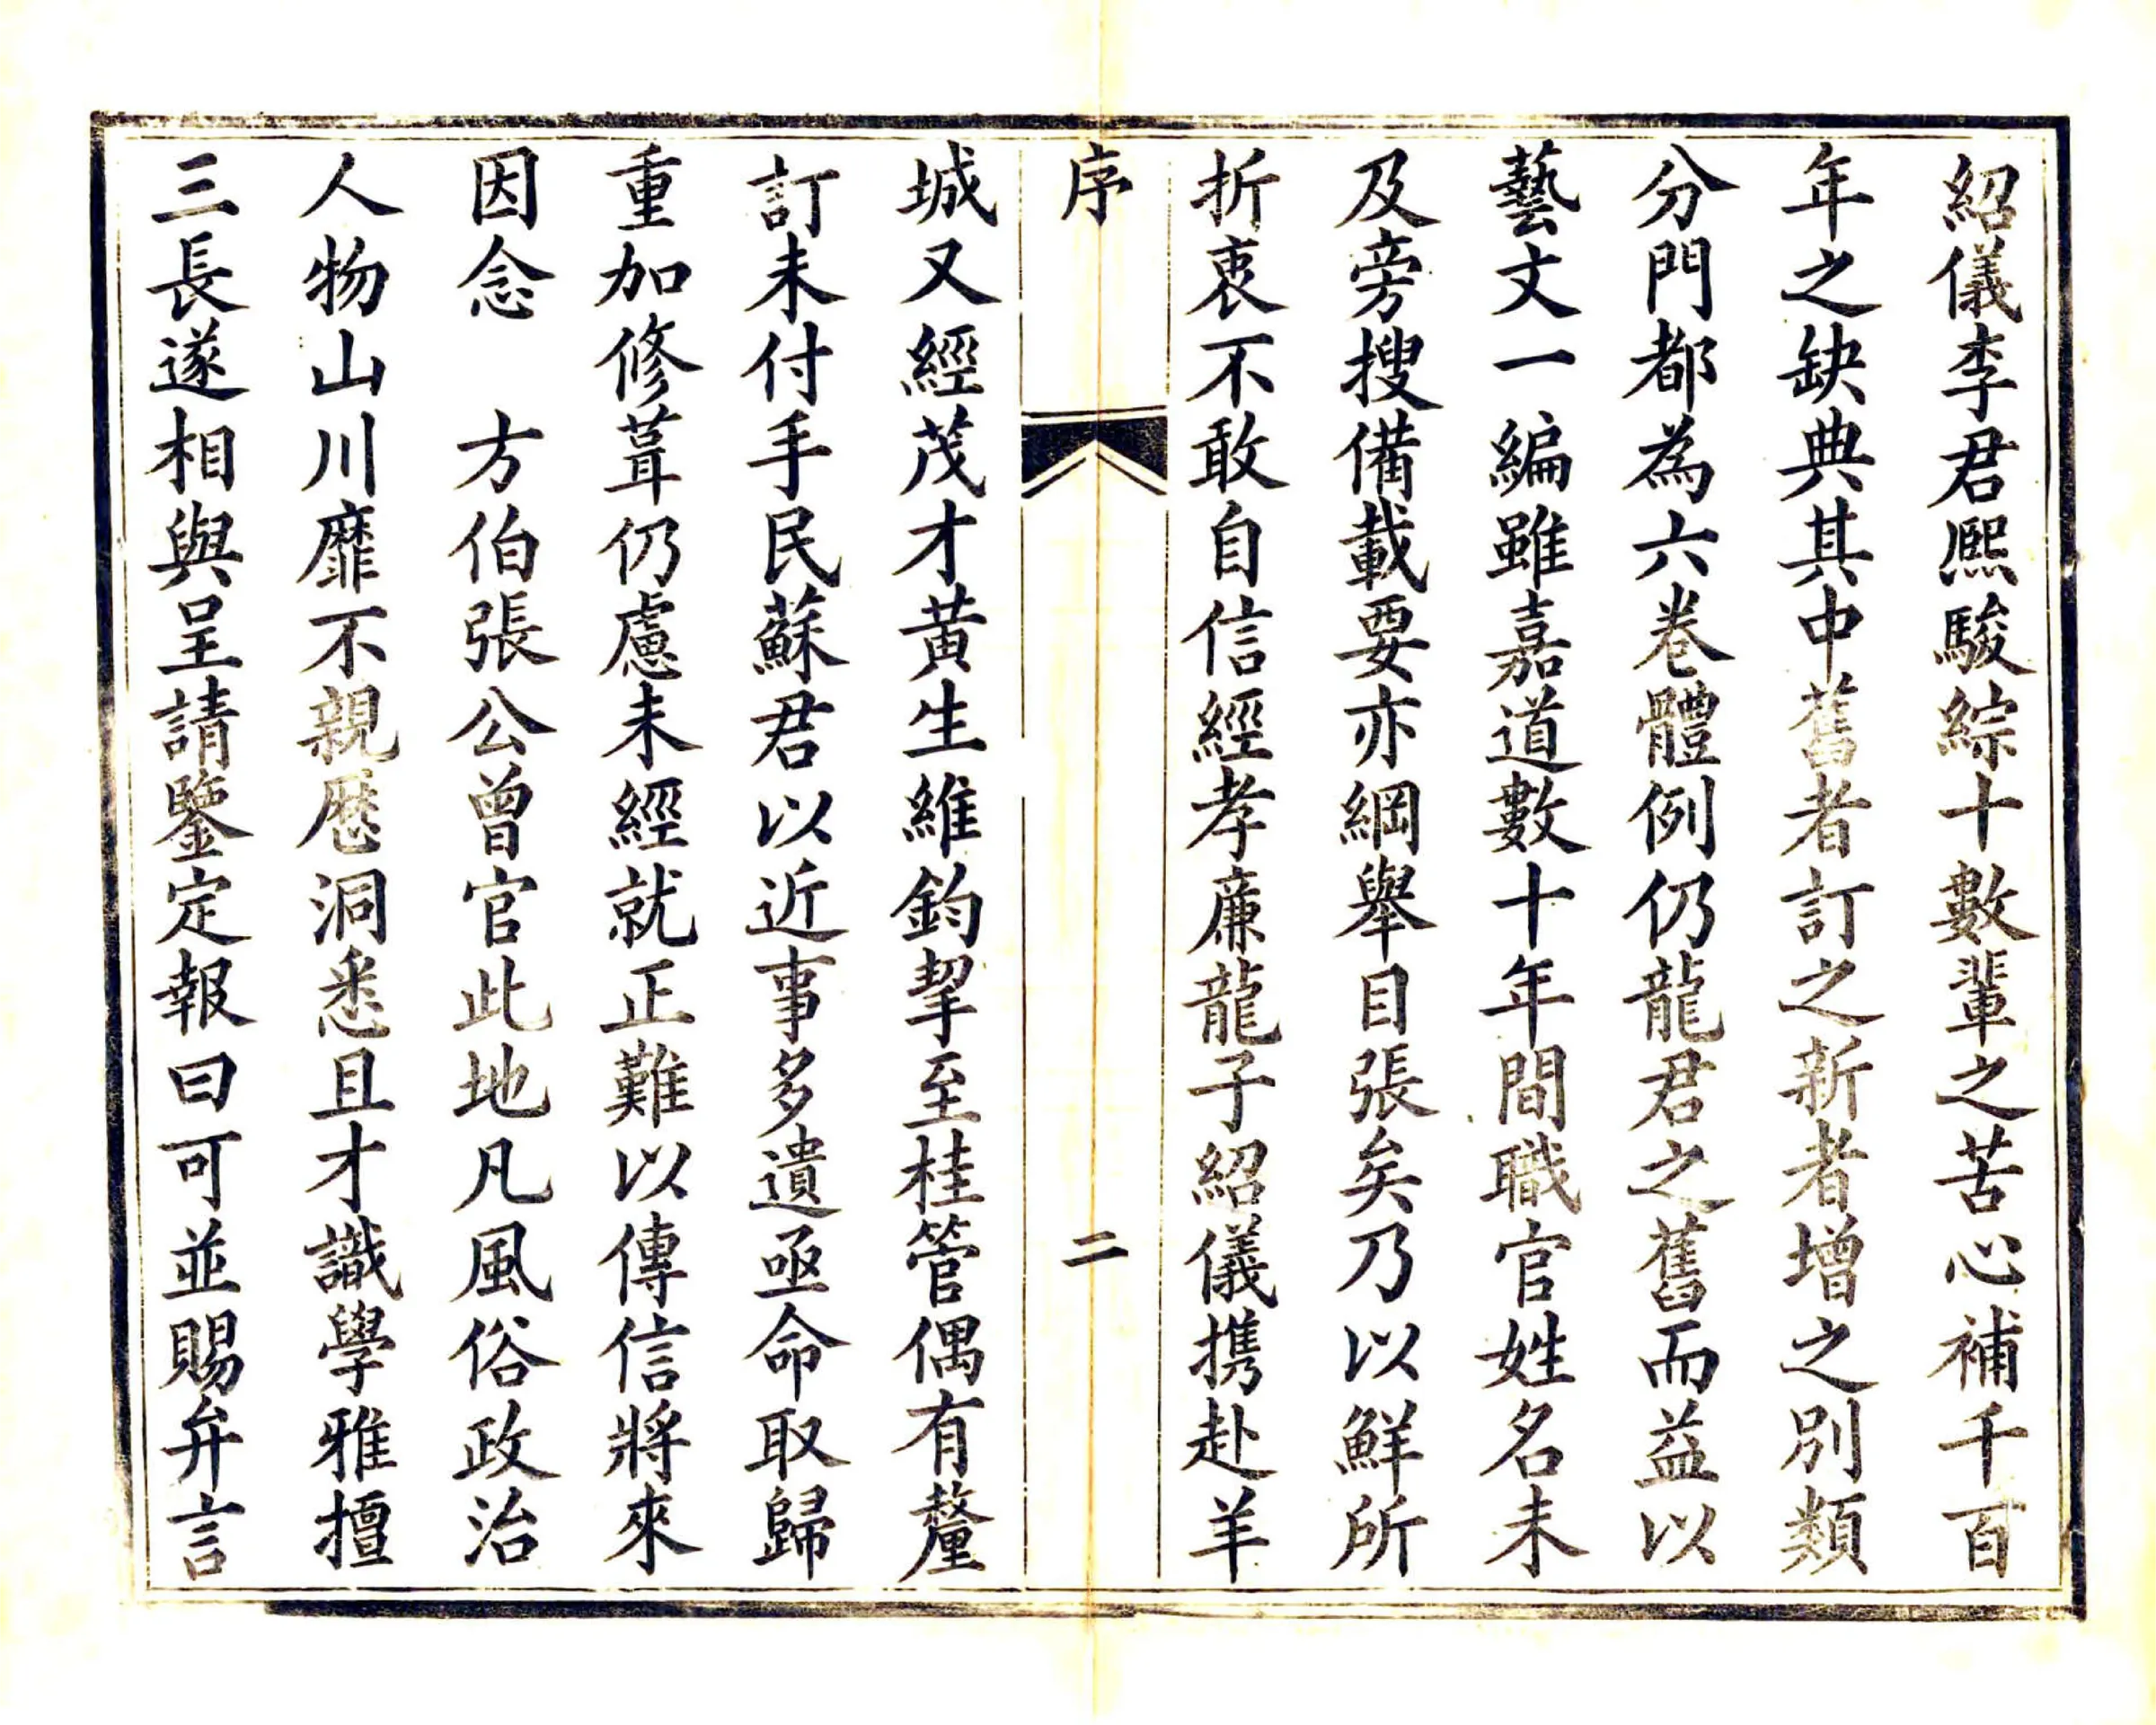 紹儀李君熈駿綜十數輩之苦心補千百
年之缺典其中舊者訂之新者增之別類
分門都為六卷體例仍龍君之舊而益以
藝文一編雖嘉道數十年間職官姓名未
及旁搜備載要亦綱舉目張矣乃以鮮所
折衷不敢自信經孝廉龍子紹儀携赴羊
序
二
城又經茂才黄生維鈞挈至桂管偶有釐
訂未付手民蘇君以近事多遺亟命取歸
重加修葺仍慮未經就正難以傳信將來
因念　方伯張公曾官此地凡風俗政治
人物山川靡不親歷洞悉且才識學雅擅
三長遂相與呈請鑒定報曰可並賜弁言